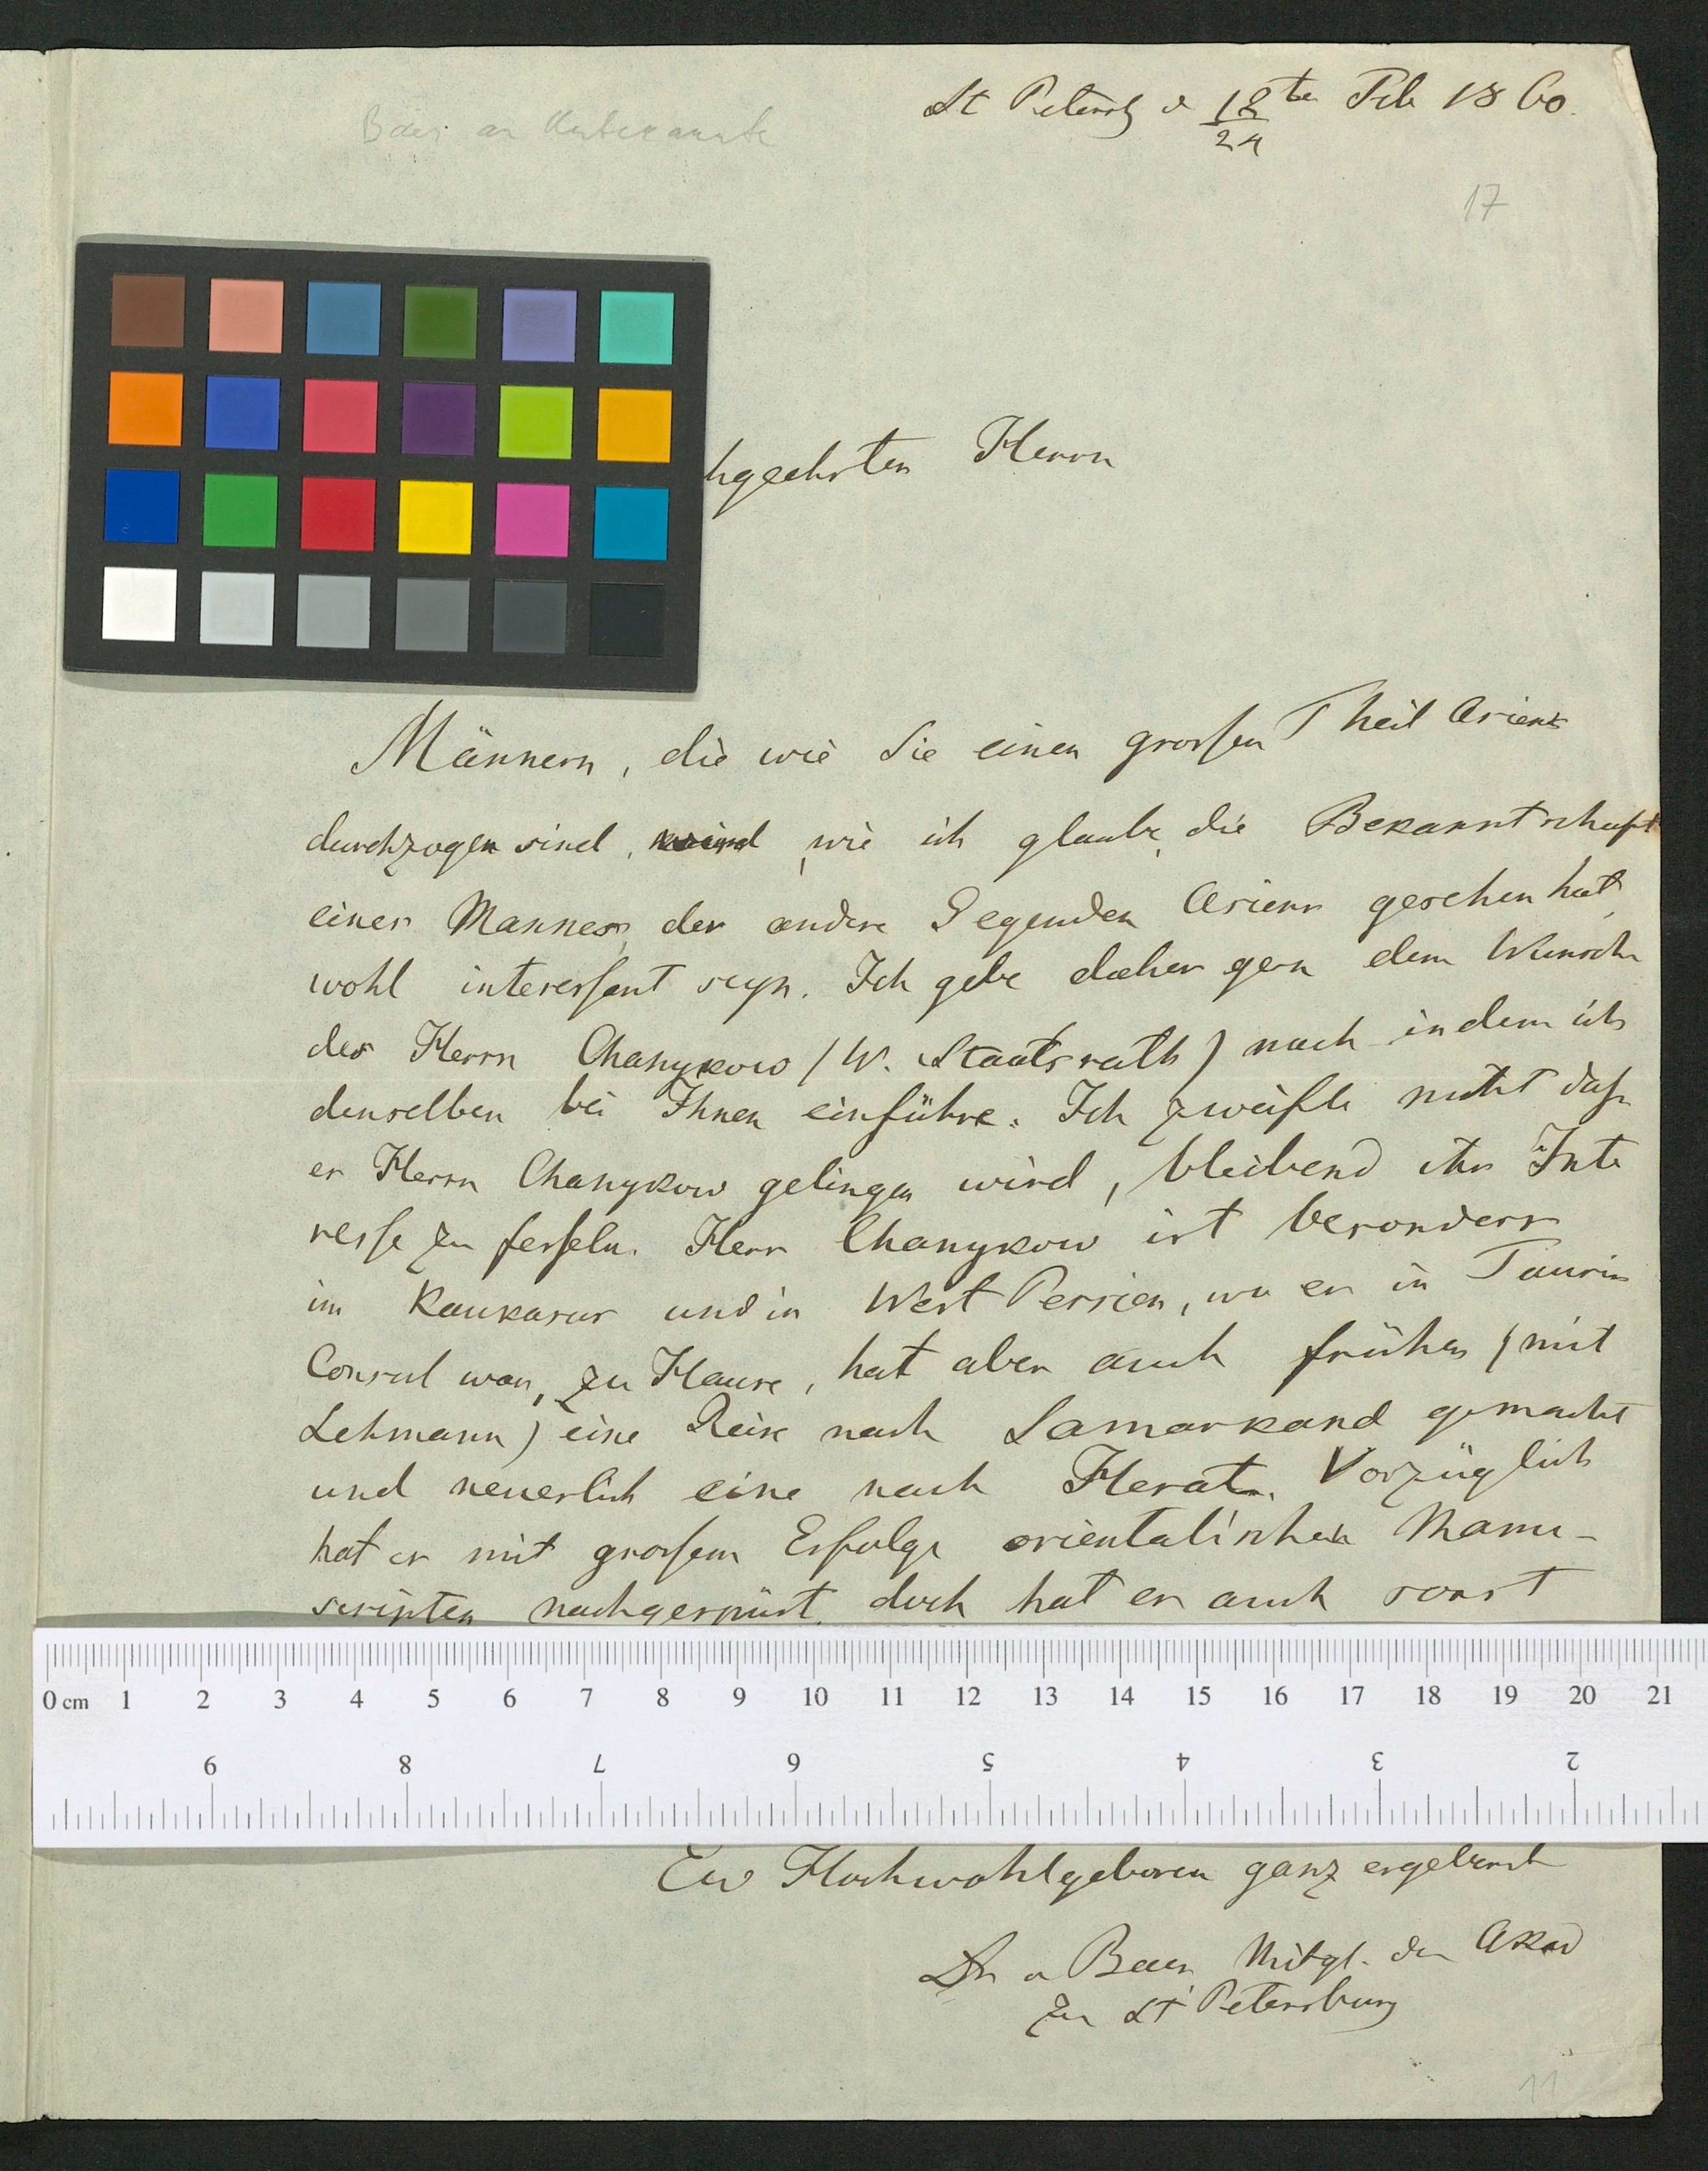 Baer an Unbekannte
St Petersb d 12/24 ten Feb 1860.
17
hgeehrten Herrn
Männern, die wie Sie einen grossen Theil Asiens
durchzogen sind, wird, wie ich glaube, die Bekanntschaft
eines Mannes, der andere Gegenden Asiens gesehen hat,
wohl interessant seyn. Ich gebe daher gern dem Wunsche
des Herrn Chanykow (W. Staatsrath) nach indem ich
denselben bei Ihnen einführe. Ich zweifle nicht dass
es Herrn Chanykow gelingen wird, bleibend ihr Inte
resse zu fesseln. Herr Chanykow ist besonders
im Kaukasus und in West Persien, wo er in Tauris
Consul war, zu Hause, hat aber auch früher (mit
Lehmann) eine Reise nach Samarkand gemacht
und neuerlich eine nach Herat. Vorzüglich
hat er mit grossem Erfolge orientalischen Manu-
scripten nachgespürt, doch hat er auch sonst
0 cm 1 2 3 4 5 6 7 8 9 10 11 12 13 14 15 16 17 18 19 20 21
9 8 7 6 5 4 3 2
Ew Hochwohlgeboren ganz ergebenst
Dr v Baer, Mitgl. der Akad
zu St Petersburg
11